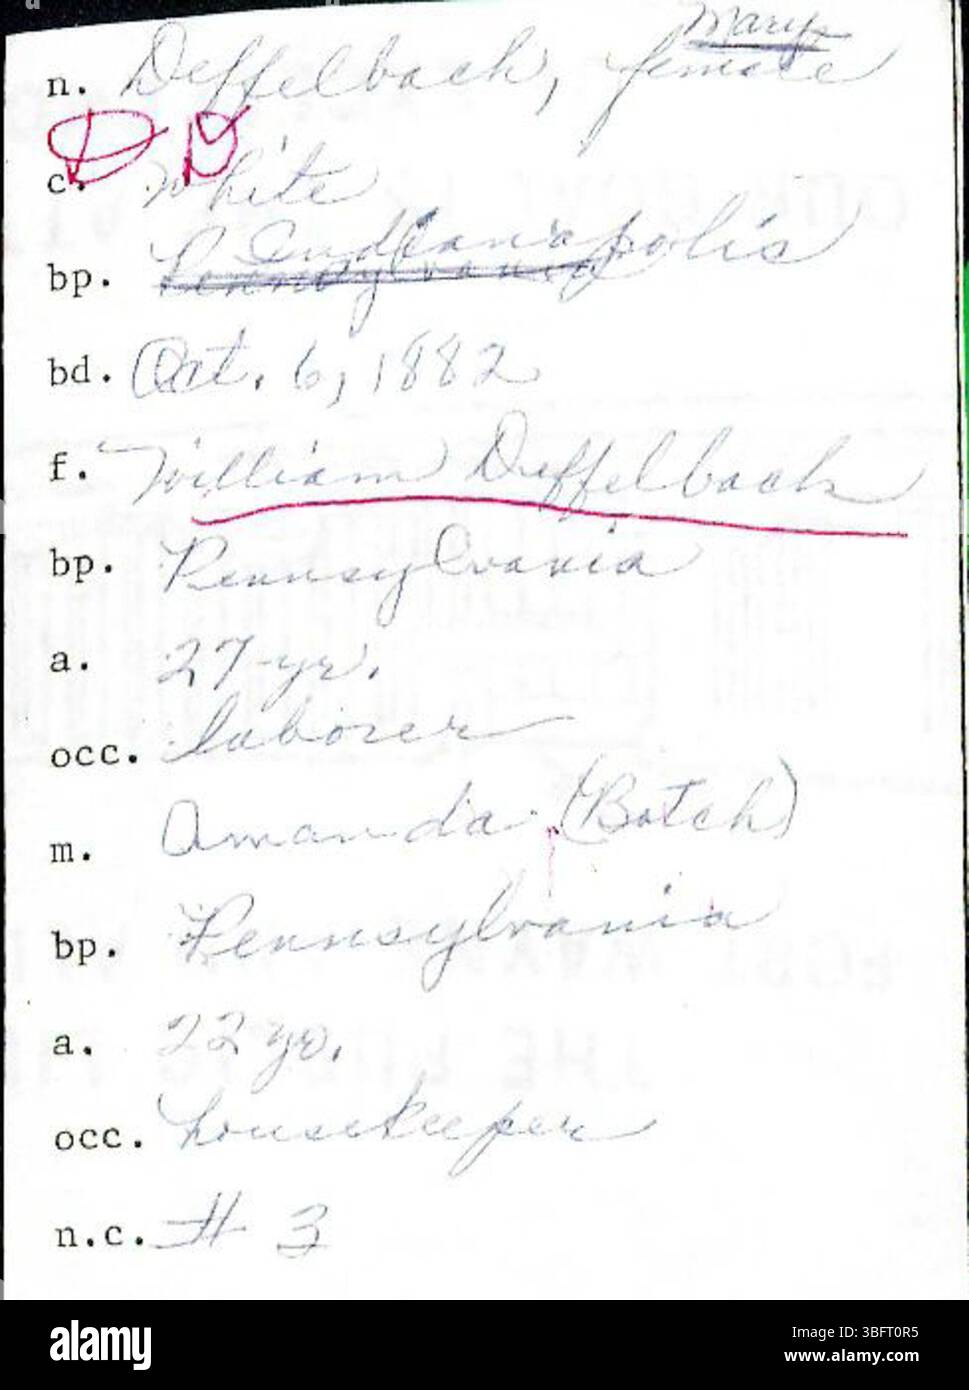 Mary
n. Deffelbach, female
D D
c. White
Indianapolis
bp. Pennsylvania
bd. Oct. 6, 1882
f. William Deffelbach
bp. Pennsylvania
a. 27 yr.
occ. laborer
m. Amanda (Botch)
bp. Pennsylvania
a. 22 yr.
occ. housekeeper
n.c. # 3
alamy
Image ID: 3BFT0R5
www.alamy.com